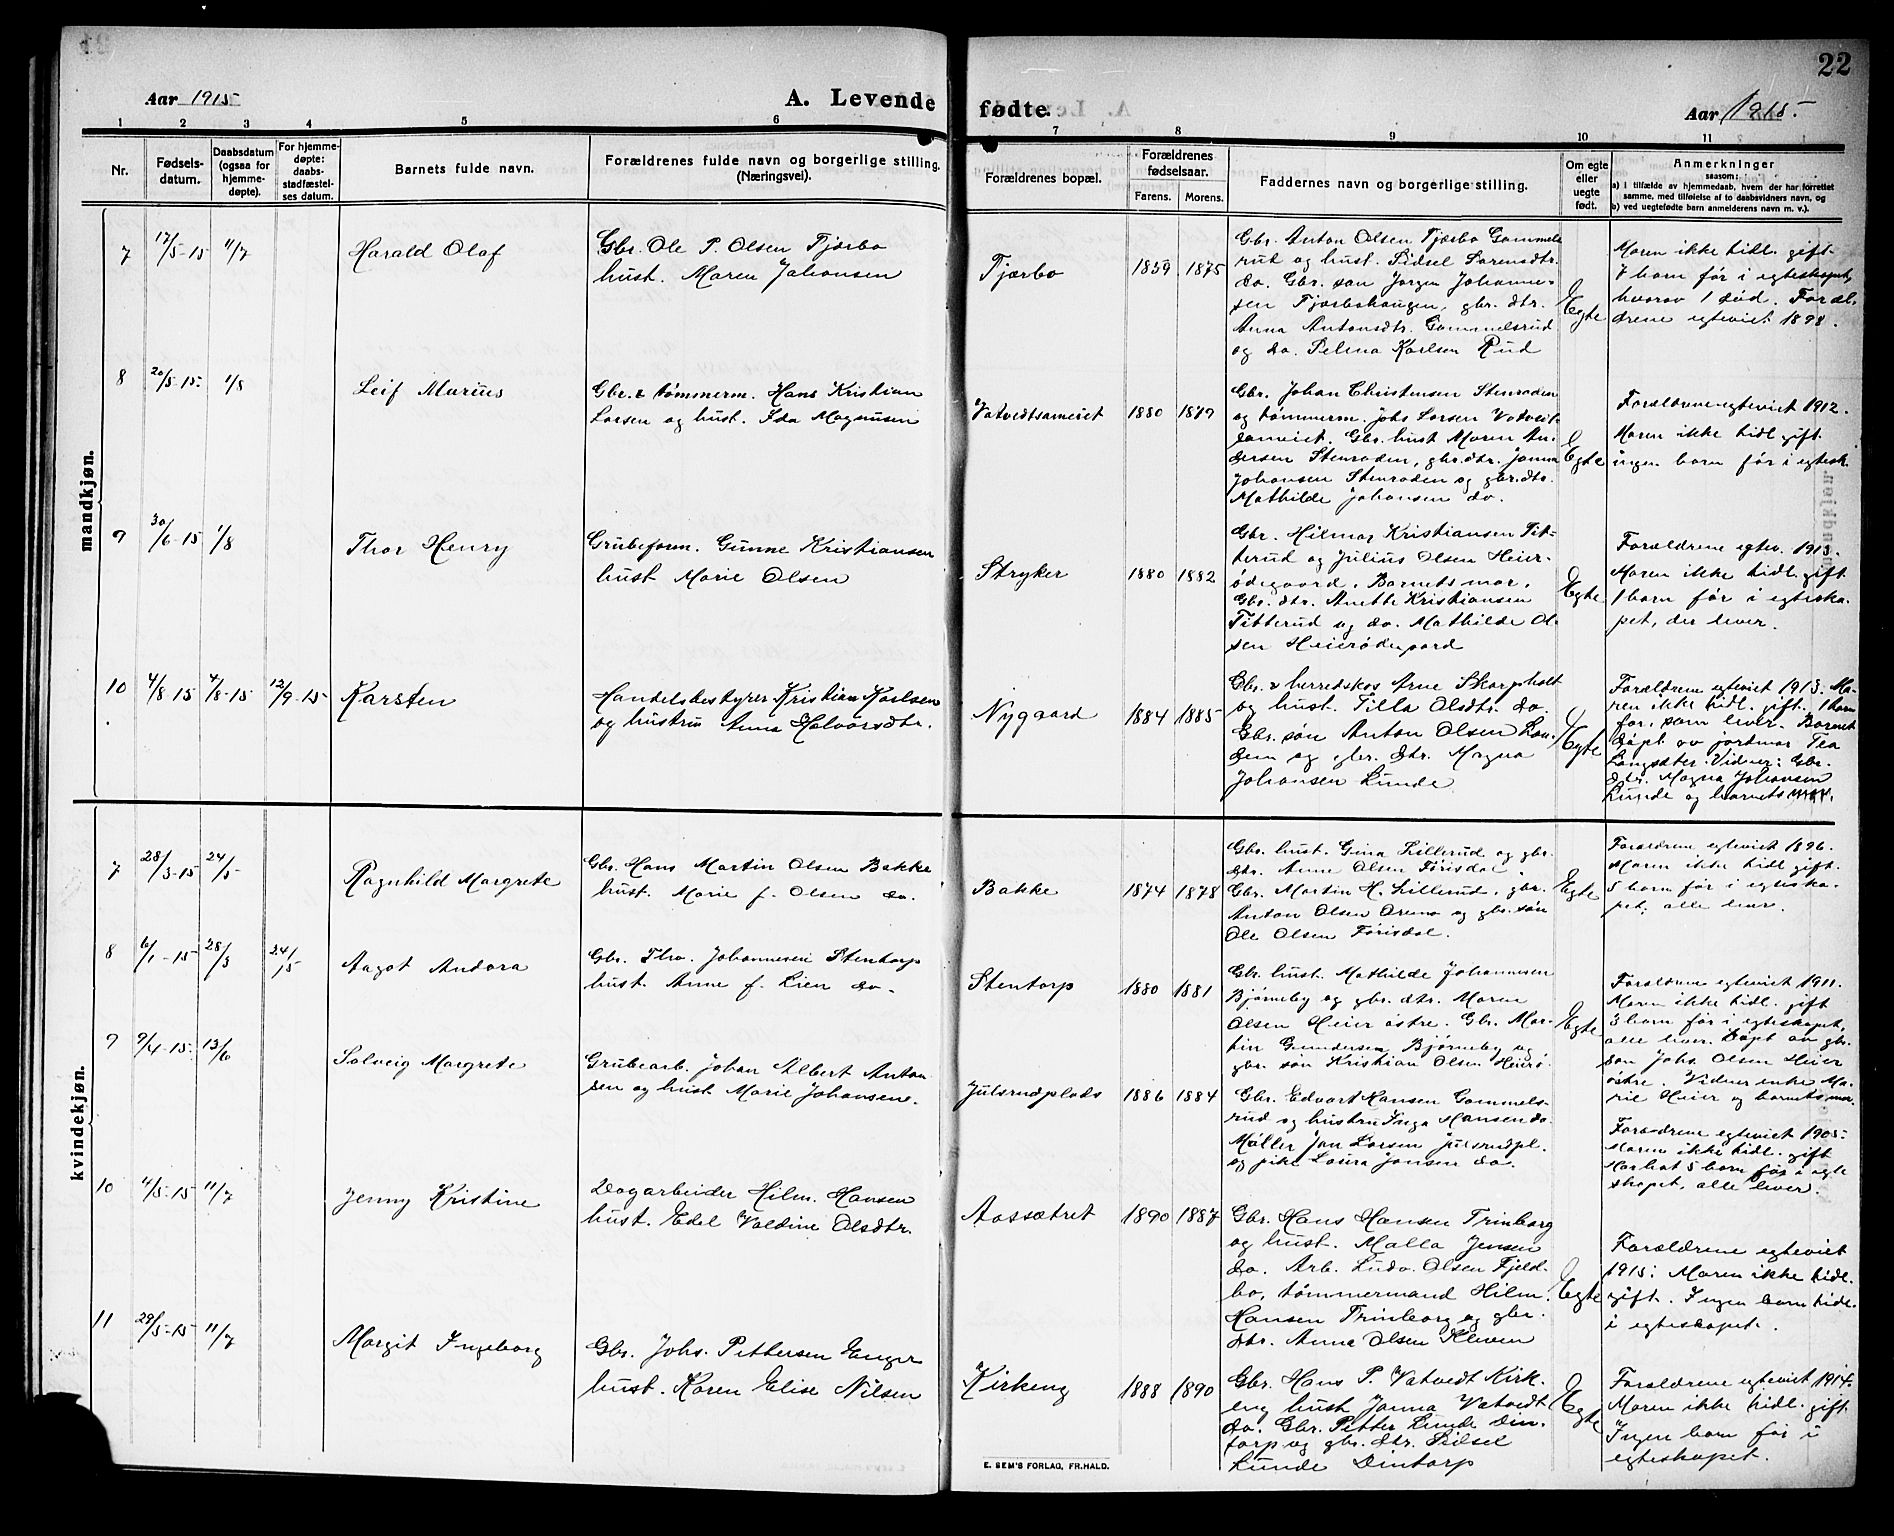 22
Aar 1915
A. Levende
fødte.
Aar 1915.
1 2 3 4 5 6
7 8 9 10 11
Nr.
Fødsels-
datum.
Daabsdatum
(ogsaa for
hjemme-
døpte).
For hjemme-
døpte:
daabs-
stadfæstel-
ses datum.
Barnets fulde navn.
Forældrenes fulde navn og borgerlige stilling.
(Næringsvei).
Forældrenes bopæl.
Forældrenes
fødselsaar.
Farens. Morens.
Faddernes navn og borgerlige stilling.
Om egte
eller
uegte
født.
Anmerkninger
saasom:
a) i tilfælde av hjemmedaab, hvem der har forrettet
samme, med tilføielse af to daabsvidners navn, og
b) ved uegtefødte barn anmelderens navn m. v.).
mandkjøn.
7
17/5-15
11/7
Harald Olaf
Gbr. Ole P. Olsen Tjærbo
hust. Maren Johansen
Tjærbo
1859 1875
Gbr. Anton Olsen Tjærbo Gammels
rud og hust. Sidsel Sørensdtr.
do. Gbr. søn Jørgen Johanne-
sen Tjærbohaugen, gbr. dtr.
Anna Antonsdtr. Gammelsrud
og do. Selma Karlsen Rud
Egte
Moren ikke tidl. gift.
7 barn før i egteskapet,
hvorav 1 død. Foræl-
drene egteviet 1898.
8
20/5-15.
1/8
Leif Marius
Gbr. & tømmerm. Hans Kristian
Larsen og hust. Ida Magnusen
Vatvedtsameiet
1880 1879
Gbr. Johan Christensen Stenroden
og tømmerm. Johs Larsen Vatvedt-
sameiet. Gbr. hust Maren An-
dersen Stenroden, gbr. dtr. Janna
Johansen Stenroden og gbr. dtr.
Mathilde Johansen do.
Egte
Forældrene egteviet 1912.
Moren ikke tidl gift.
ingen barn før i egtesk.
9
30/6-15
1/8
Thor Henry
Grubeform. Gunne Kristiansen
hust Marie Olsen
Stryker
1880 1882
Gbr. Hilmar Kristiansen Tit-
terud og Julius Olsen Heier-
ødegaard. Barnets mor.
Gbr. dtr. Anette Kristiansen
Titterud og do. Mathilde Ol-
sen Heierødegaard
Egte
Forældrene egtev. 1913.
Moren ikke tidl. gift
1 barn før i egteska-
pet, der lever.
10
4/8-15
4/8-15
12/9-15
Karsten
Handelsbestyrer Kristian Karlsen
og hustru Anna Halvorsdtr.
Nygaard
1884 1885
Gbr. & herredskas Arne Skarpholt
og hust. Tilla Olsdtr. do.
Gbr. søn Anton Olsen Lun-
dem og gbr. dtr. Magna
Johansen Lunde
Egte
Forældrene egteviet 1913. Mo-
ren ikke tidl. gift. 1 barn
før, som lever. Barnet
døpt av jordmor Tea
Langsæter. Vidner: Gbr.
dtr. Magna Johansen
Lunde og barnets mor.
kvindekjøn.
7
28/3-15
24/5
Ragnhild Margrete
Gbr. Hans Martin Olsen Bakke
hust. Marie f. Olsen do.
Bakke
1874 1878
Gbr. hust. Gina Lillerud og gbr.
dtr. Anne Olsen Førisdal.
Gbr. Martin H. Lillerud, gbr.
Anton Olsen Oremo og gbr. søn
Ole Olsen Førisdal.
Egte
Forældrene egteviet 1896.
Moren ikke tidl. gift.
5 barn før i egteska-
pet; alle lever.
8
6/1-15
28/3
24/ 15
Aagot Andora
Gbr. Thv. Johannesen Stentorp
hust. Anne f. Lien do.
Stentorp
1880 1881
Gbr. hust. Mathilde Johannesen
Bjørneby og gbr. dtr. Maren
Olsen Heier østre. Gbr. Mar-
tin Gundersen Bjørneby og
gbr. søn Kristian Olsen Heierø.
Egte
Forældrene egteviet 1911.
Moren ikke tidl. gift
3 barn før i egteskapet,
alle lever. Døpt av gbr.
søn Johs Olsen Heier
østre. Vidner enke Ma-
rie Heier og barnets mor.
9
9/4-15
13/6
Solveig Margrete
Grubearb. Johan Albert Anton-
sen og hust Marie Johansene.
Julsrudplads
1886 1884
Gbr. Edvart Hansen Gammels-
rud og hustru Inga Hansen do.
Møller Jan Larsen Julsrudpl.
og pike Laura Jansen do.
Forældrene egteviet 1905.
Moren ikke tidl. gift
Har hat 5 barn før i egte
skapet, alle lever.
10
4/5-15
11/7
Jenny Kristine
Dagarbeider Hilm. Hansen
hust. Edel Valdine Olsdtr.
Aassætret
1890 1887
Gbr. Hans Hansen Trinborg
og hust. Malla Jensen
do. Arb. Ludv. Olsen Fjeld-
bo, tømmermand Hilm.
Hansen Trinborg og gbr.
dtr. Anna Olsen Kleven
Egte
Forældrene egteviet
1915. Moren ikke tidl.
gift. Ingen barn tidl.
i egteskapet.
11
29/5-15
11/7
Margit Ingeborg
Gbr. Johs. Pettersen Enger
hust. Karen Elise Nilsen
Kirkeng
1888 1890
Gbr. Hans P. Vatvedt Kirk-
eng hust Janna Vatvedt
do. Gbr. Petter Lunde Din-
torp og gbr. dtr. Sidsel
Lunde Dintorp
Egte
Forældrene egteviet 1914.
Moren ikke tidl. gift.
Ingen barn før i
egteskapet.
E. SEM'S FORLAG, FR.HALD.